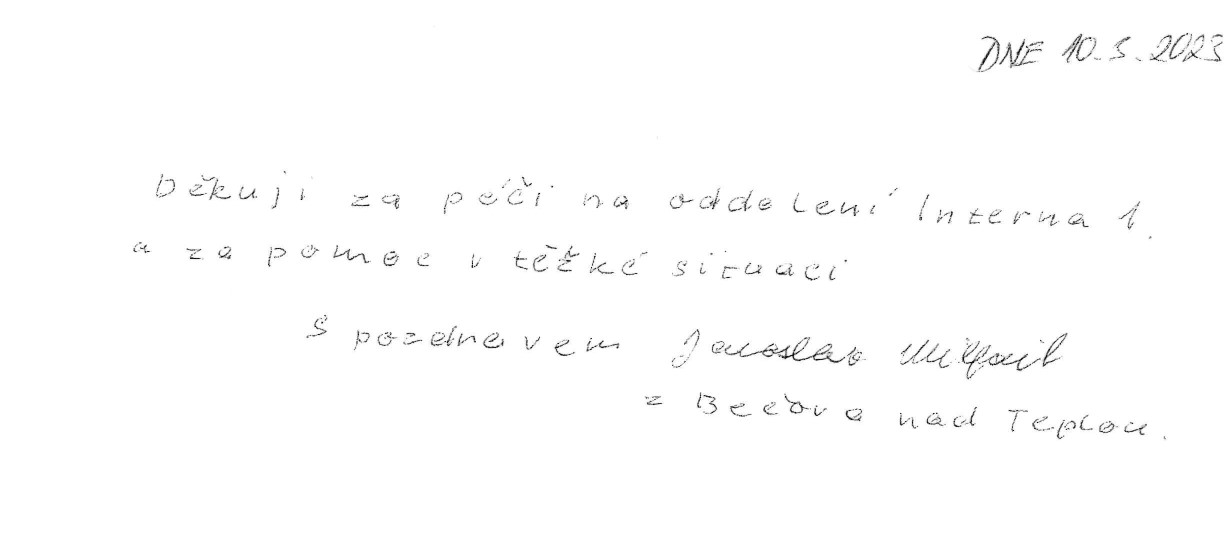 DNE 10.5.2023
Děkuji za péči na oddelení Interna 1.
a za pomoc v těžké situaci
S pozdravem Jaroslav
z Bečova nad Teplou.